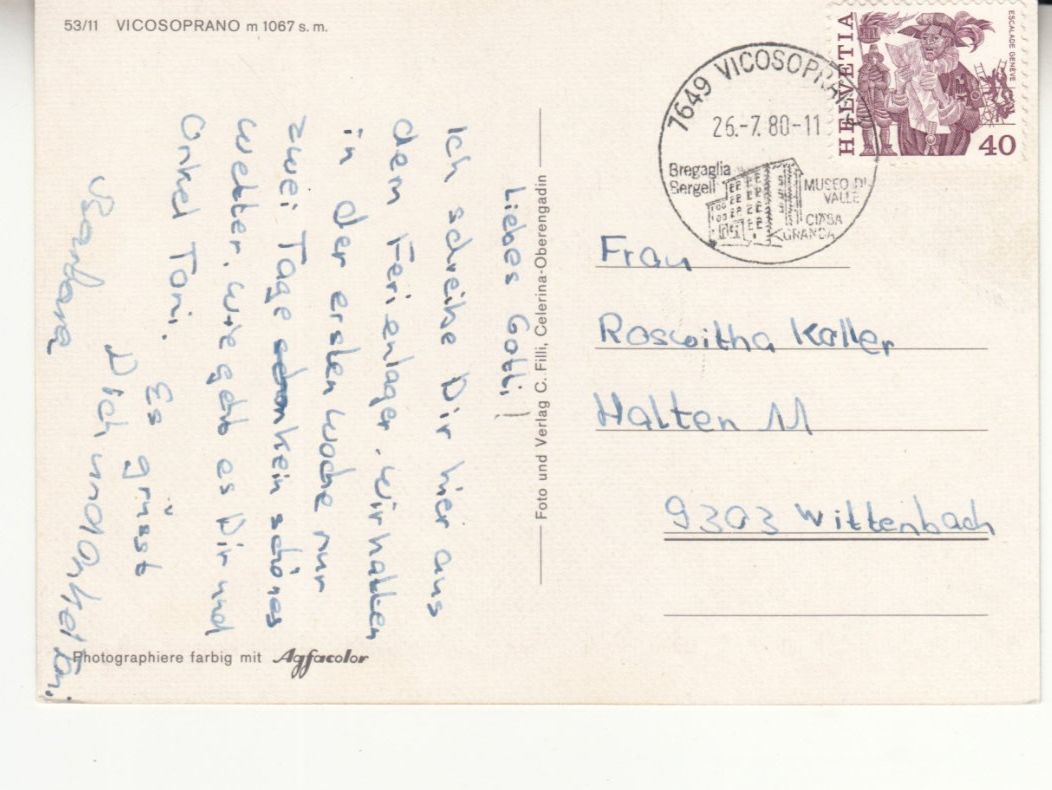 53/11 VICOSOPRANO m 1067 s. m.
Liebes Gotti!
Ich schreibe Dir hier aus
dem Ferienlager. Wir hatten
in der ersten Woche nur
zwei Tage kein schönes
Wetter. Wie geht es Dir und
Onkel Toni.
Es grüsst
Dich und Onkel Toni
Barbara
Photographiere farbig mit Agfacolor
Foto und Verlag C. Filli, Celerina-Oberengadin
7649 VICOSOPRANO
26.-7.80-11
Bregaglia
Bergell
MUSEO DI
VALLE
CIÄSA
GRANDA
HELVETIA
ESCALADE GENÈVE
40
Frau
Roswitha Koller
Halten 11
9303 Wittenbach